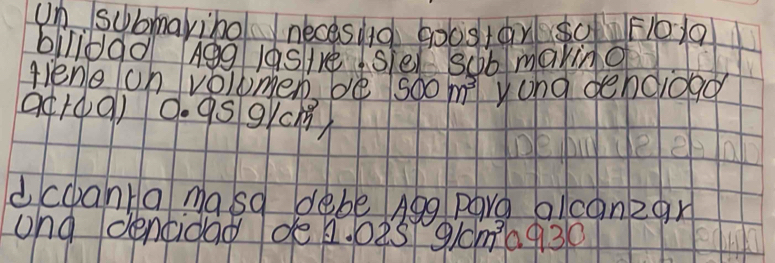 Un submarino necesita goostar so Flota
bilidad Agg lastre. siel sub marino
tiene un volumen de 500 m³ y una dencidad
actual 0.95 g/cm³,
¿cuanta masa debe Agg para alcanzar
una dencidad de 1.025 g/cm³ 0.930